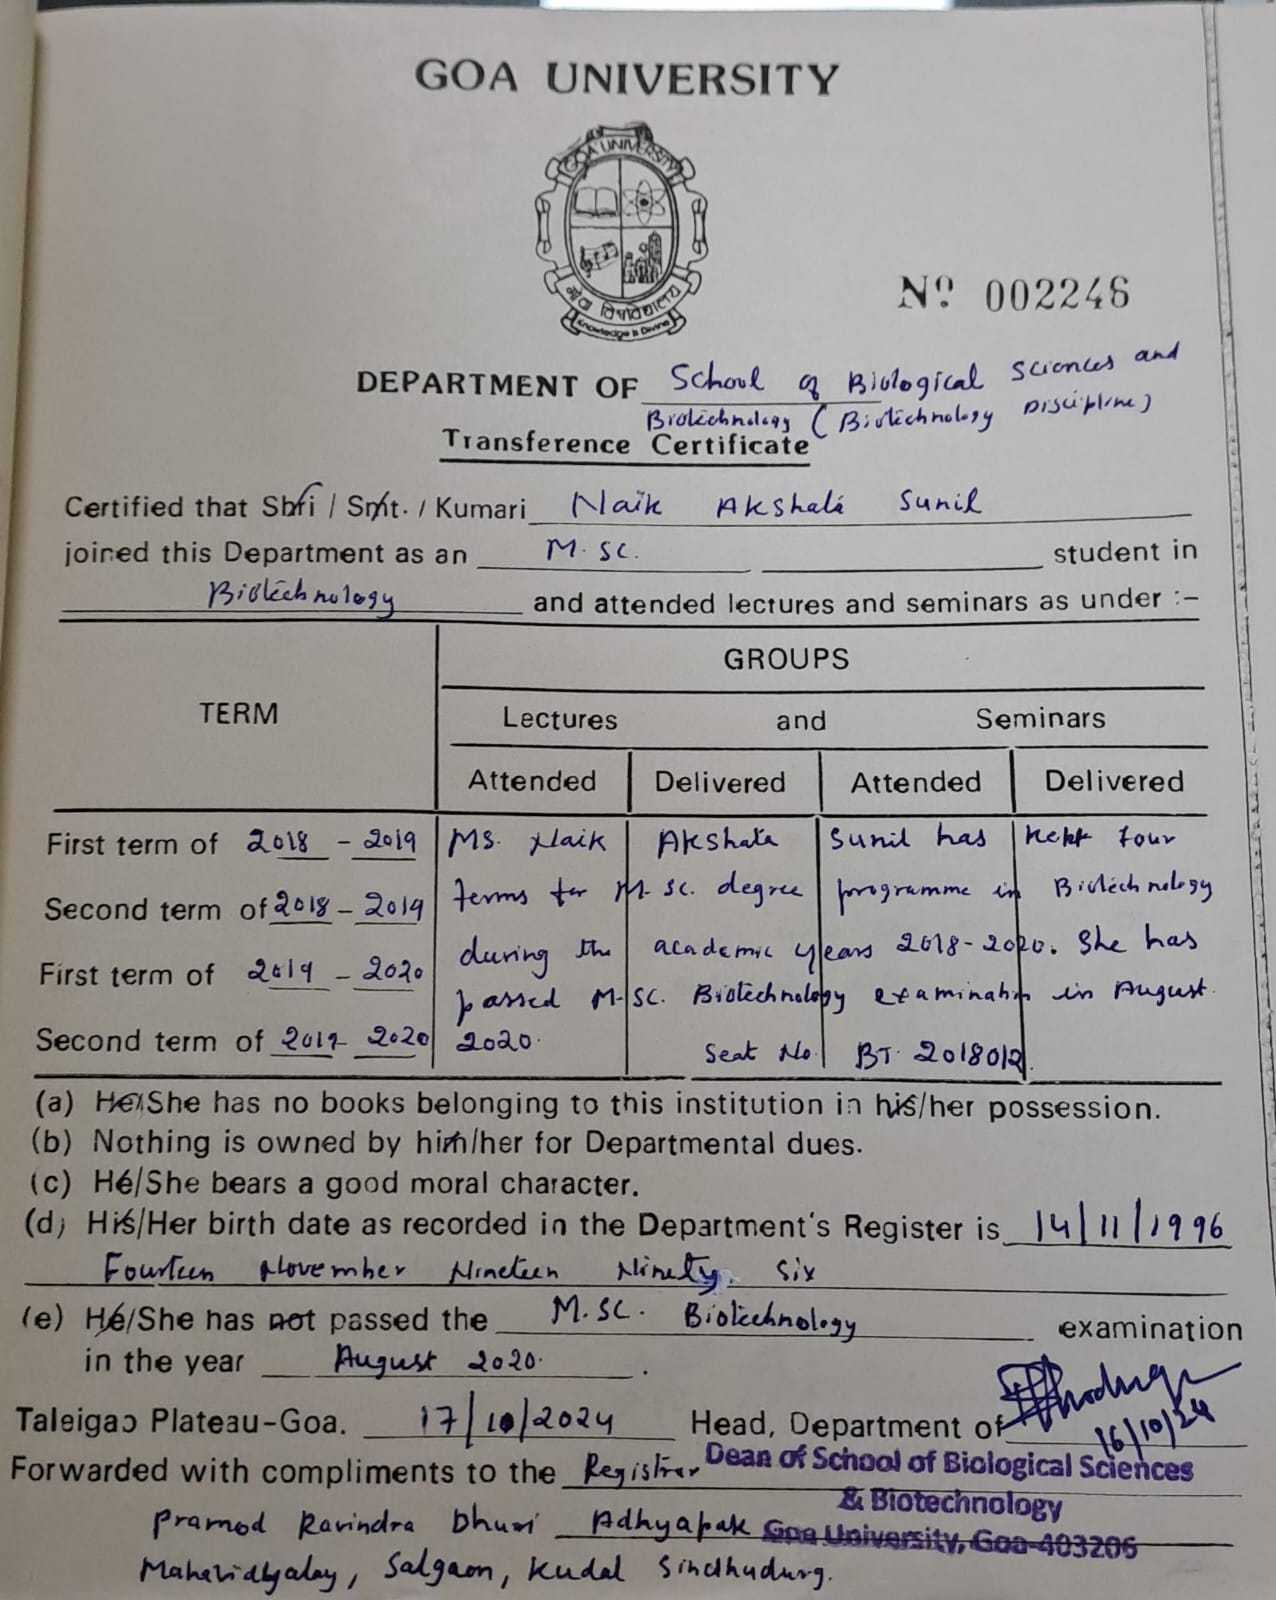 GOA UNIVERSITY
GOA UNIVERSITY
गोंय विश्वविद्यालय
Knowledge is Divine
Nº 002246
DEPARTMENT OF School of Biological Sciences and
Biotechnology (Biotechnology Discipline)
Transference Certificate
Certified that Shri / Smt. / Kumari Naik Akshata Sunil
joined this Department as an M.Sc. student in
Biotechnology and attended lectures and seminars as under :-
TERM
GROUPS
Lectures and Seminars
Attended Delivered Attended Delivered
First term of 2018 - 2019 Ms. Naik Akshata Sunil has kept four
Second term of 2018 - 2019 terms for M.Sc. degree programme in Biotechnology
during the academic years 2018-2020. She has
First term of 2019 - 2020
passed M.Sc. Biotechnology examination in August
Second term of 2019 - 2020 2020. Seat No. BT. 2018012.
(a) He/She has no books belonging to this institution in his/her possession.
(b) Nothing is owned by him/her for Departmental dues.
(c) He/She bears a good moral character.
(d) His/Her birth date as recorded in the Department's Register is 14/11/1996
Fourteen November Nineteen Ninety Six
(e) He/She has not passed the M.Sc. Biotechnology examination
in the year August 2020.
Taleigao Plateau-Goa. 17/10/2024 Head, Department of
16/10/24
Forwarded with compliments to the Registrar Dean of School of Biological Sciences
& Biotechnology
Pramod Ravindra Dhuri Adhyapak Goa University, Goa-403206
Mahavidyalay, Salgaon, Kudal Sindhudurg.